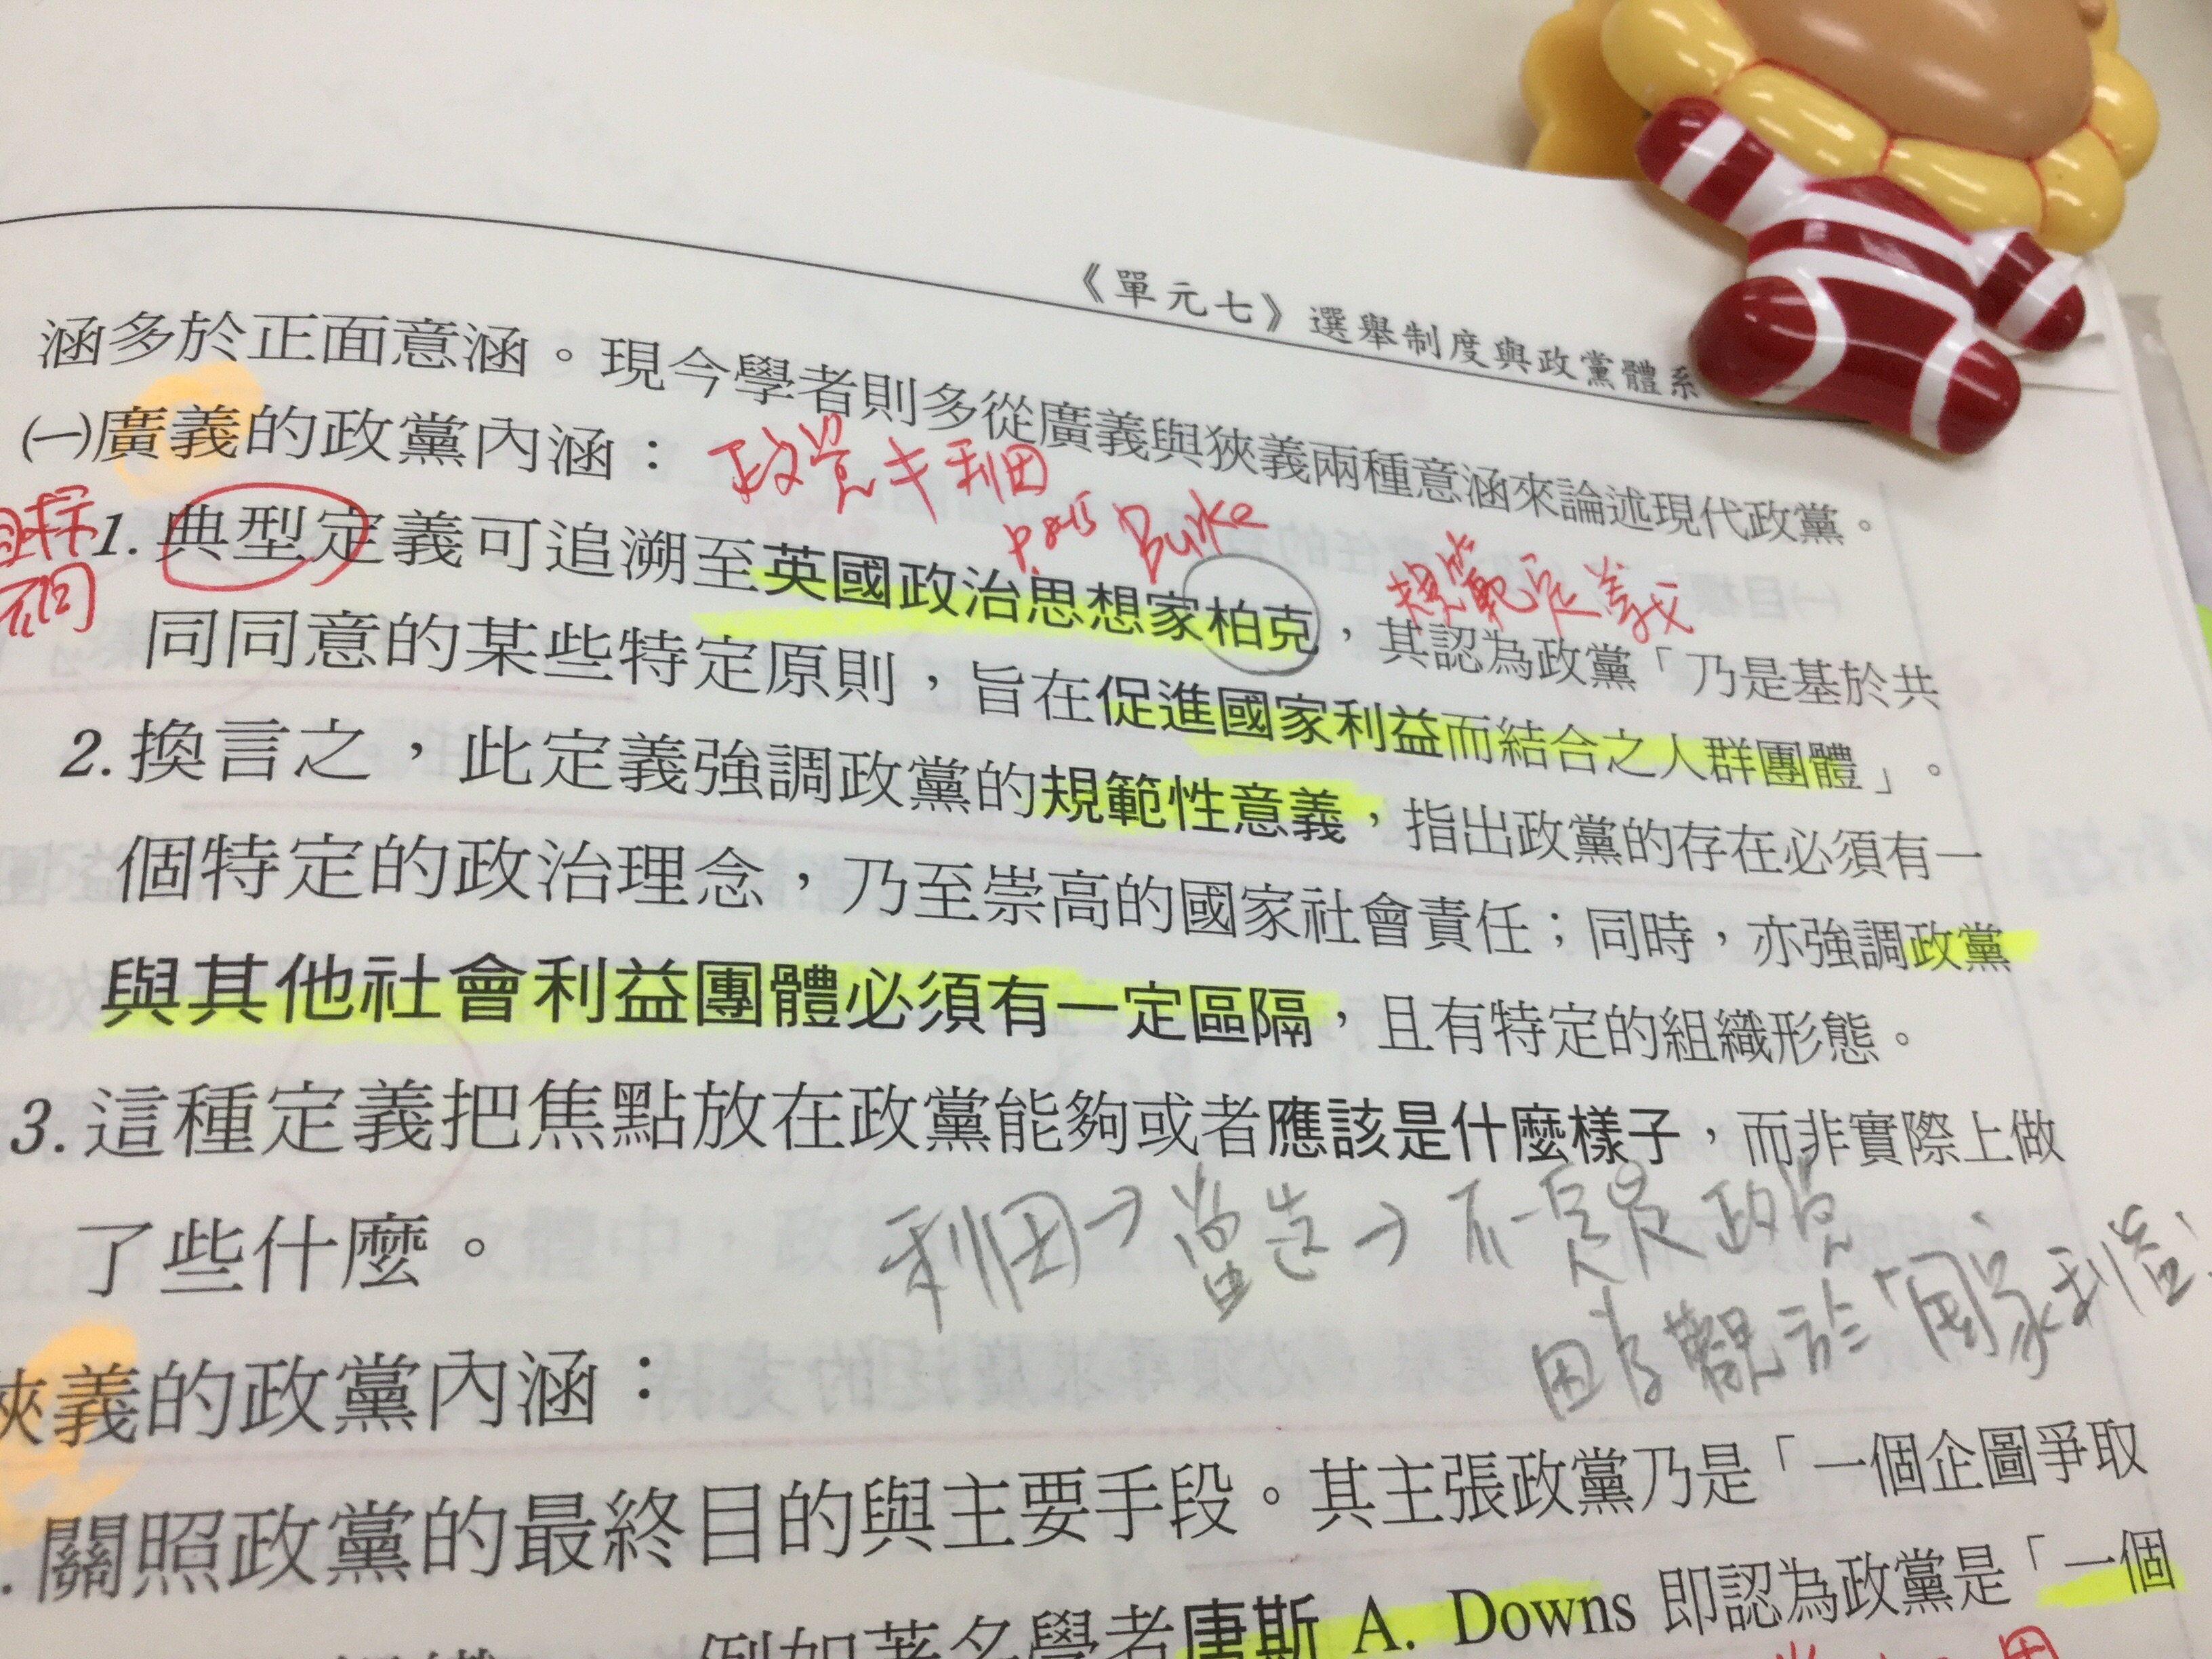 《單元七》選舉制度與政黨體系
涵多於正面意涵。現今學者則多從廣義與狹義兩種意涵來論述現代政黨。
㈠廣義的政黨內涵：
政党≠利团
P.8-15 Burke
規範定義
目标
不同
1.典型定義可追溯至英國政治思想家柏克，其認為政黨「乃是基於共
同同意的某些特定原則，旨在促進國家利益而結合之人群團體」。
2.換言之，此定義強調政黨的規範性意義，指出政黨的存在必須有一
個特定的政治理念，乃至崇高的國家社會責任；同時，亦強調政黨
與其他社會利益團體必須有一定區隔，且有特定的組織形態。
3.這種定義把焦點放在政黨能夠或者應該是什麼樣子，而非實際上做
了些什麼。
利团→ →不一定是政党
「國家利益」
狹義的政黨內涵：
.關照政黨的最終目的與主要手段。其主張政黨乃是「一個企圖爭取
例如著名學者唐斯 A. Downs 即認為政黨是「一個